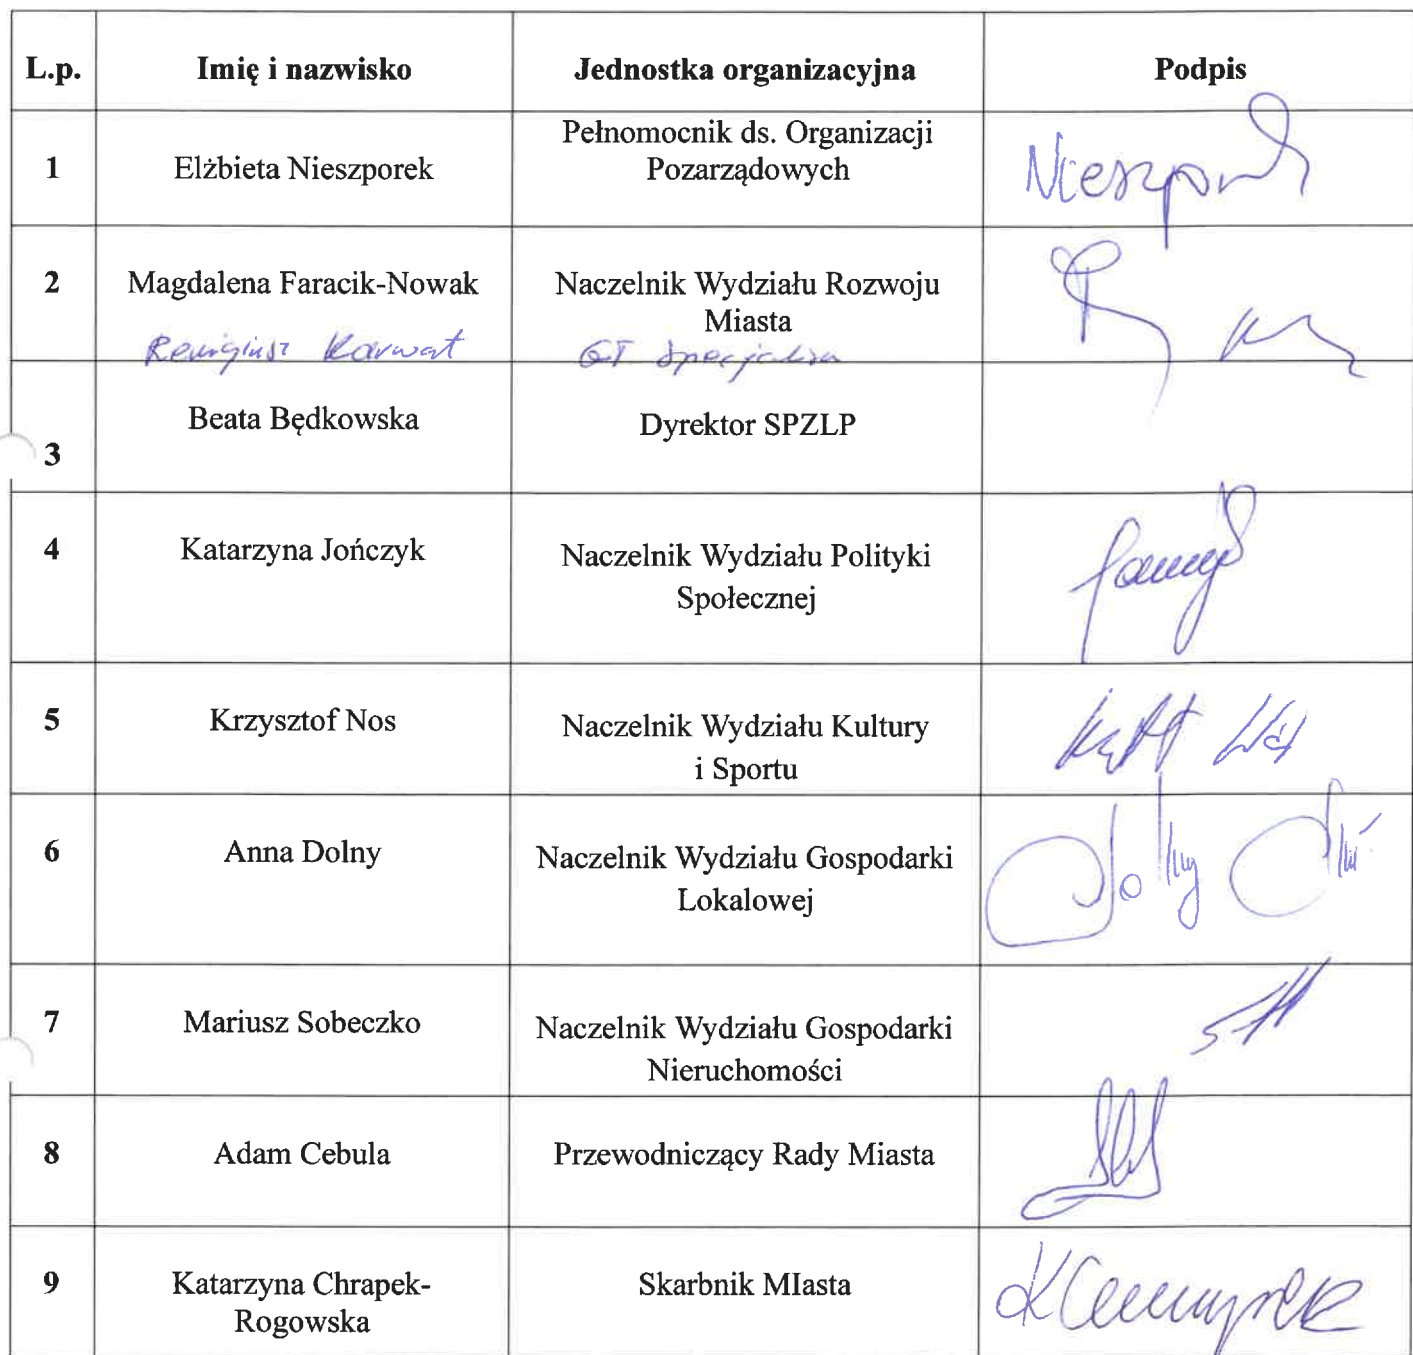 L.p. Imię i nazwisko Jednostka organizacyjna Podpis
Pełnomocnik ds. Organizacji
1 Elżbieta Nieszporek Pozarządowych
2 Magdalena Faracik-Nowak Naczelnik Wydziału Rozwoju
Miasta
Remigiusz Karwat
Beata Będkowska Dyrektor SPZLP
3
4 Katarzyna Jończyk Naczelnik Wydziału Polityki
Społecznej
5 Krzysztof Nos Naczelnik Wydziału Kultury
i Sportu
6 Anna Dolny Naczelnik Wydziału Gospodarki
Lokalowej
7 Mariusz Sobeczko Naczelnik Wydziału Gospodarki
Nieruchomości
8 Adam Cebula Przewodniczący Rady Miasta
9 Katarzyna Chrapek- Skarbnik MIasta
Rogowska